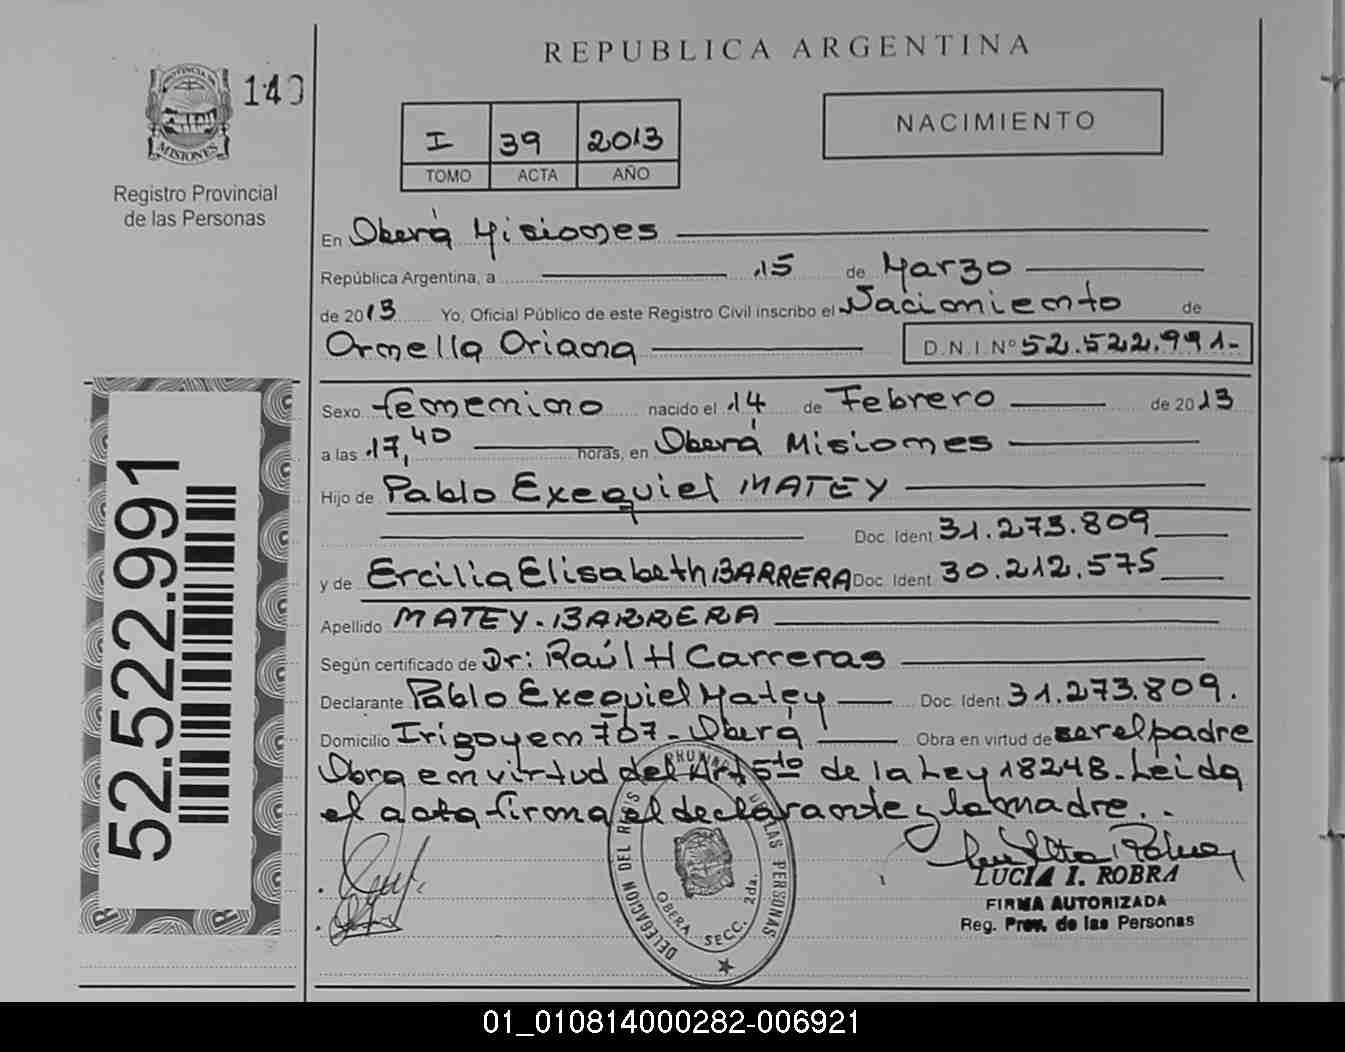 REPUBLICA ARGENTINA
PROVINCIA DE
MISIONES
140
Registro Provincial
de las Personas
I 39 2013
TOMO ACTA AÑO
NACIMIENTO
En Oberá Misiones
República Argentina, a 15 de Marzo
de 2013 Yo, Oficial Público de este Registro Civil inscribo el Nacimiento de
Ornella Oriana D.N.I. Nº 52.522.991-
Sexo femenino nacido el 14 de Febrero de 2013
a las 17,40 horas, en Oberá Misiones
Hijo de Pablo Exequiel MATEY
Doc. Ident 31.273.809
y de Ercilia Elisabeth BARRERA Doc. Ident 30.212.575
Apellido MATEY-BARRERA
Según certificado de Dr: Raúl H Carreras
Declarante Pablo Exequiel Matey Doc. Ident 31.273.809.
Domicilio Irigoyen 707 - Oberá Obra en virtud de ser el padre
Obra en virtud del Art 5to de la Ley 18248. Leida
el acta firma el declarante y la madre..
52.522.991
DELEGACION DEL REGIS PROVINCIAL DE LAS PERSONAS
OBERA SECC. 2da.
LUCIA I. ROBRA
FIRMA AUTORIZADA
Reg. Prov. de las Personas
01_010814000282-006921